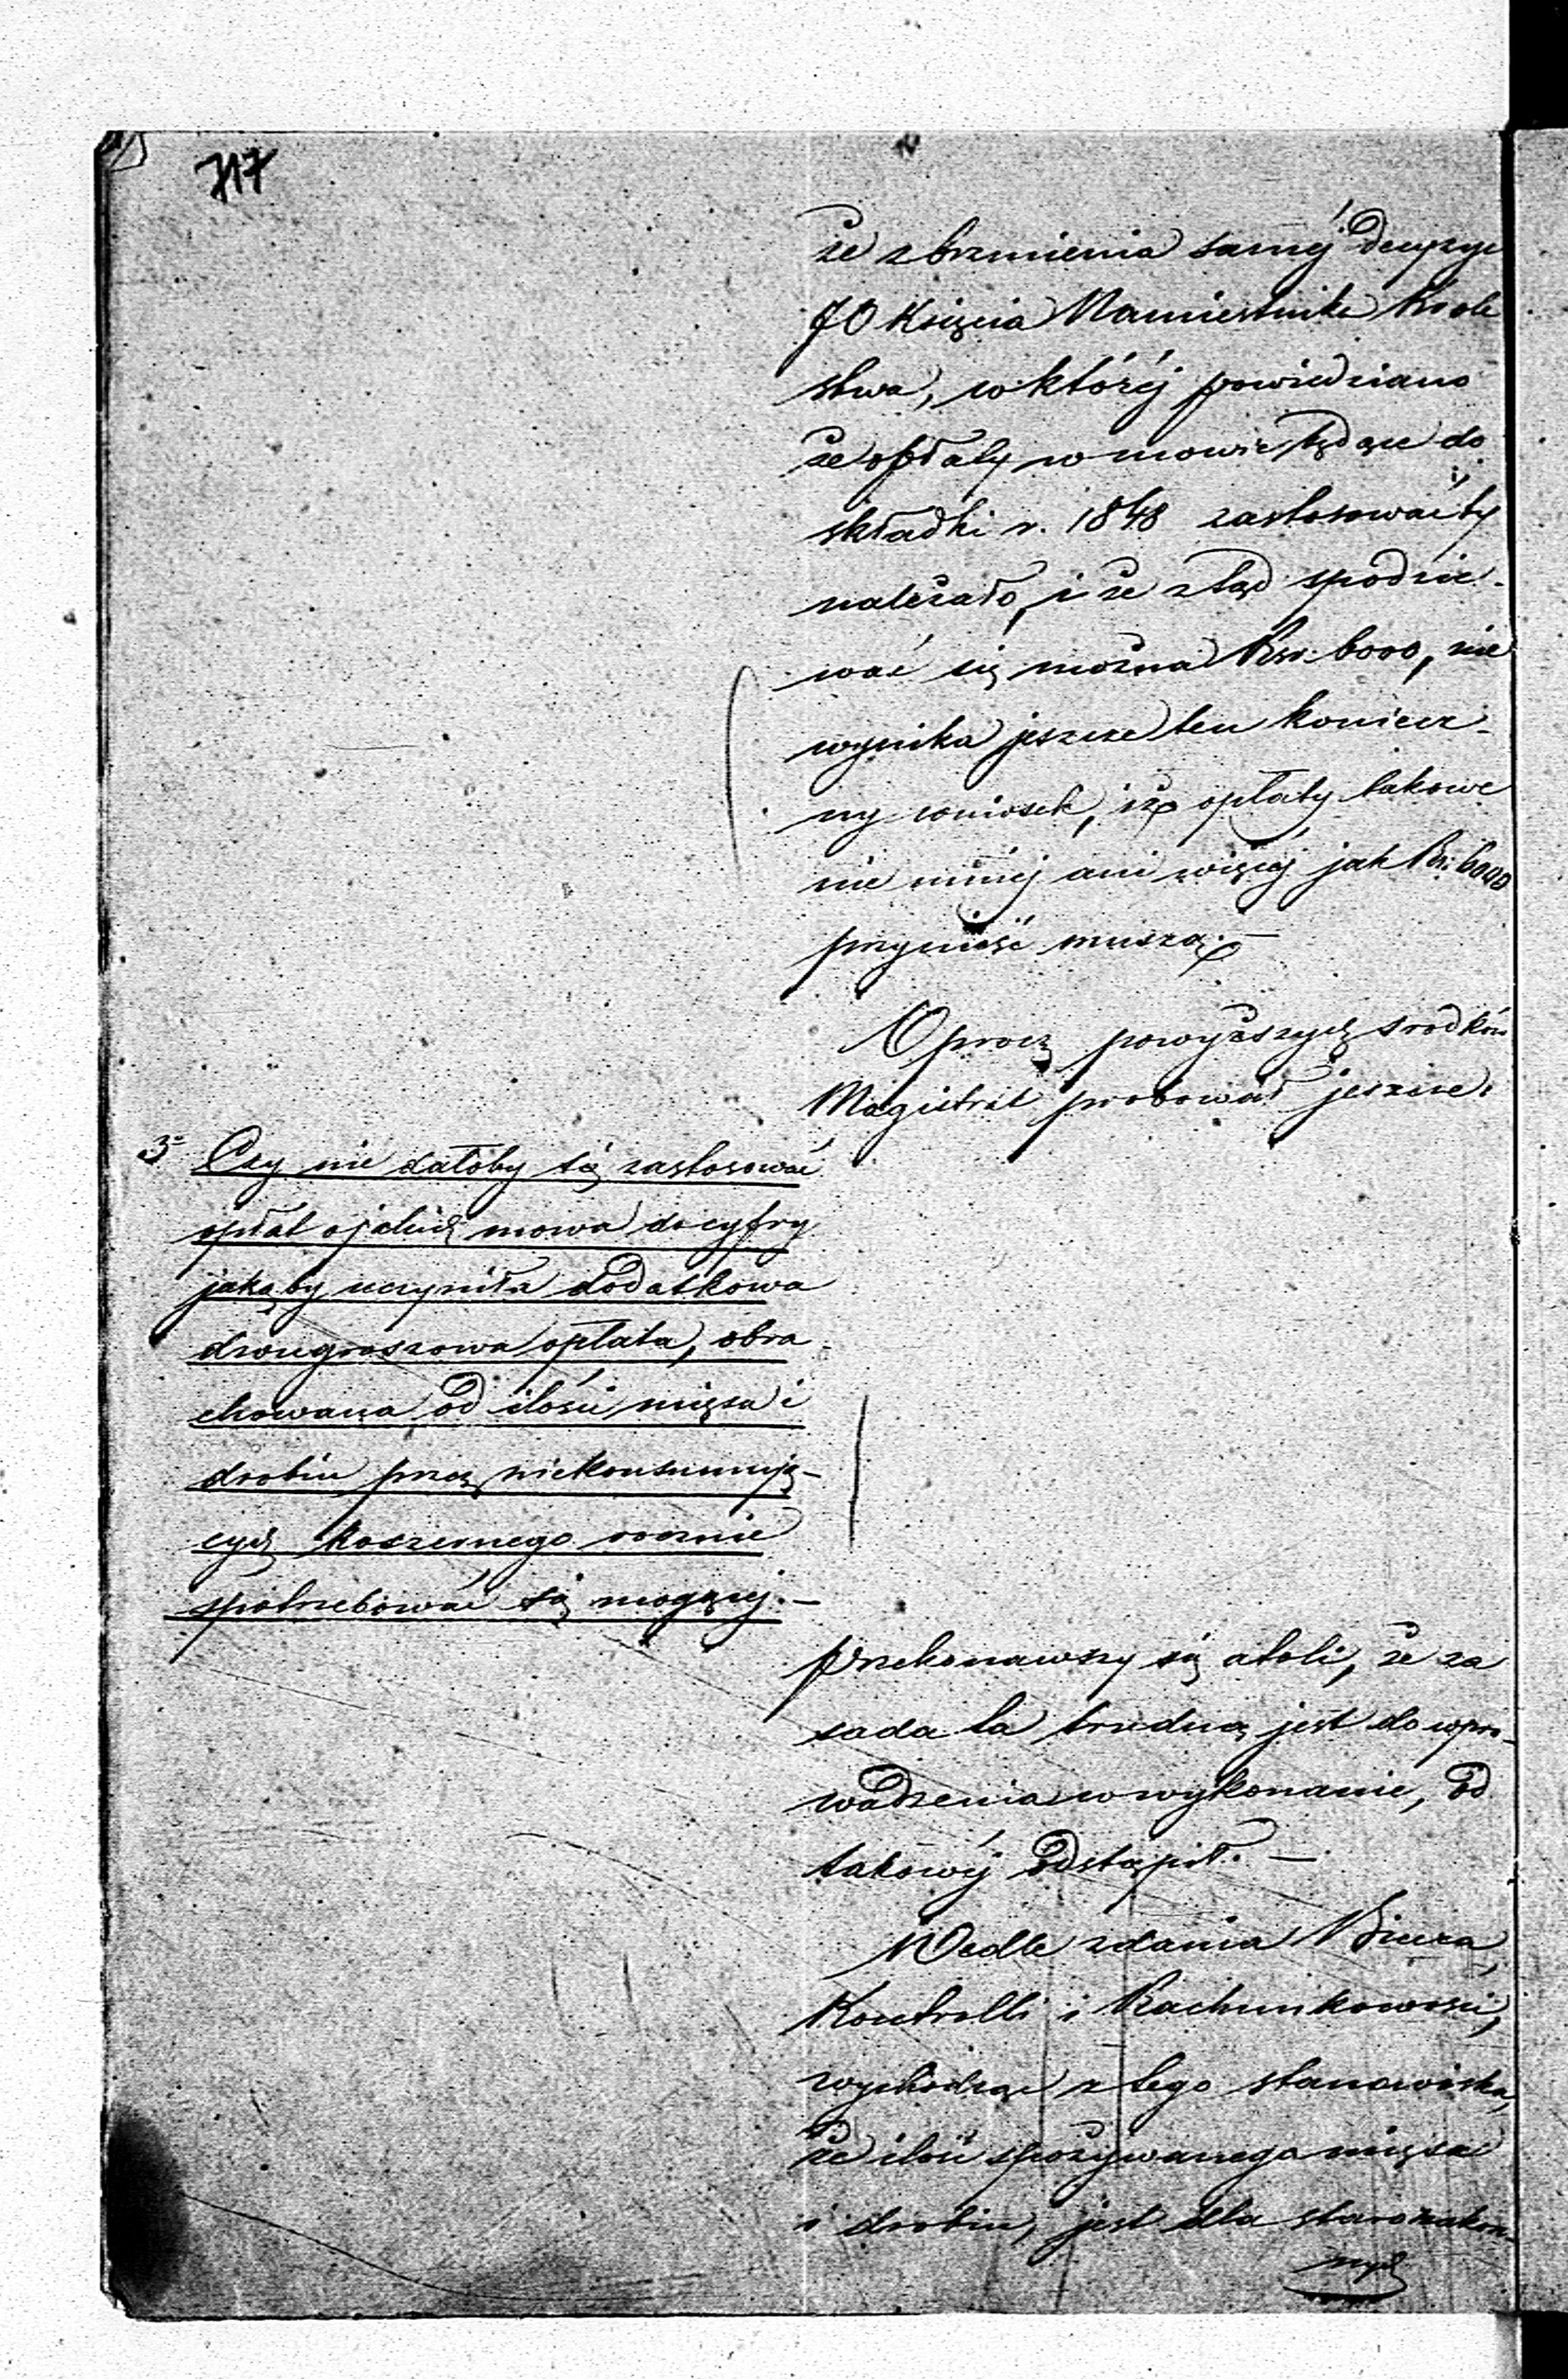 717
że z brzmienia saméj Decyzyi
JO Księcia Namiestnika Króle
stwa, w któréj powiedziano
że opłaty w mowie będące do
składki r. 1848 zastosowaćby
należało, i że ztąd spodzie-
wać się można Rsr. 6000, nie
wynika jeszcze ten koniecz-
ny wniosek, iż opłaty takowe
nie mniéj ani więcéj jak Rs. 6000
przynieść muszą. —
Oprocz powyższych srodków
Magistrat probował jeszcze:
3= Czy nie dałoby się zastosować
opłat o jakich mowa do cyfry
jakąby uczyniła dodatkowa
dwugroszowa opłata, obra
chowana od ilości mięsa i
drobiu przez niekonsumują-
cych koszernego rocznie
spotrzebować się mogącéj. —
przekonawszy się atoli, że za
sada ta trudną jest do wpro-
wadzenia w wykonanie, od
takowéj odstąpił. —
Wedle zdania Biura
Kontrolli i Rachunkowości,
wychodząc z tego stanowiska,
że ilość spożywanego mięsa
i drobiu, jest dla starozakon-
nych